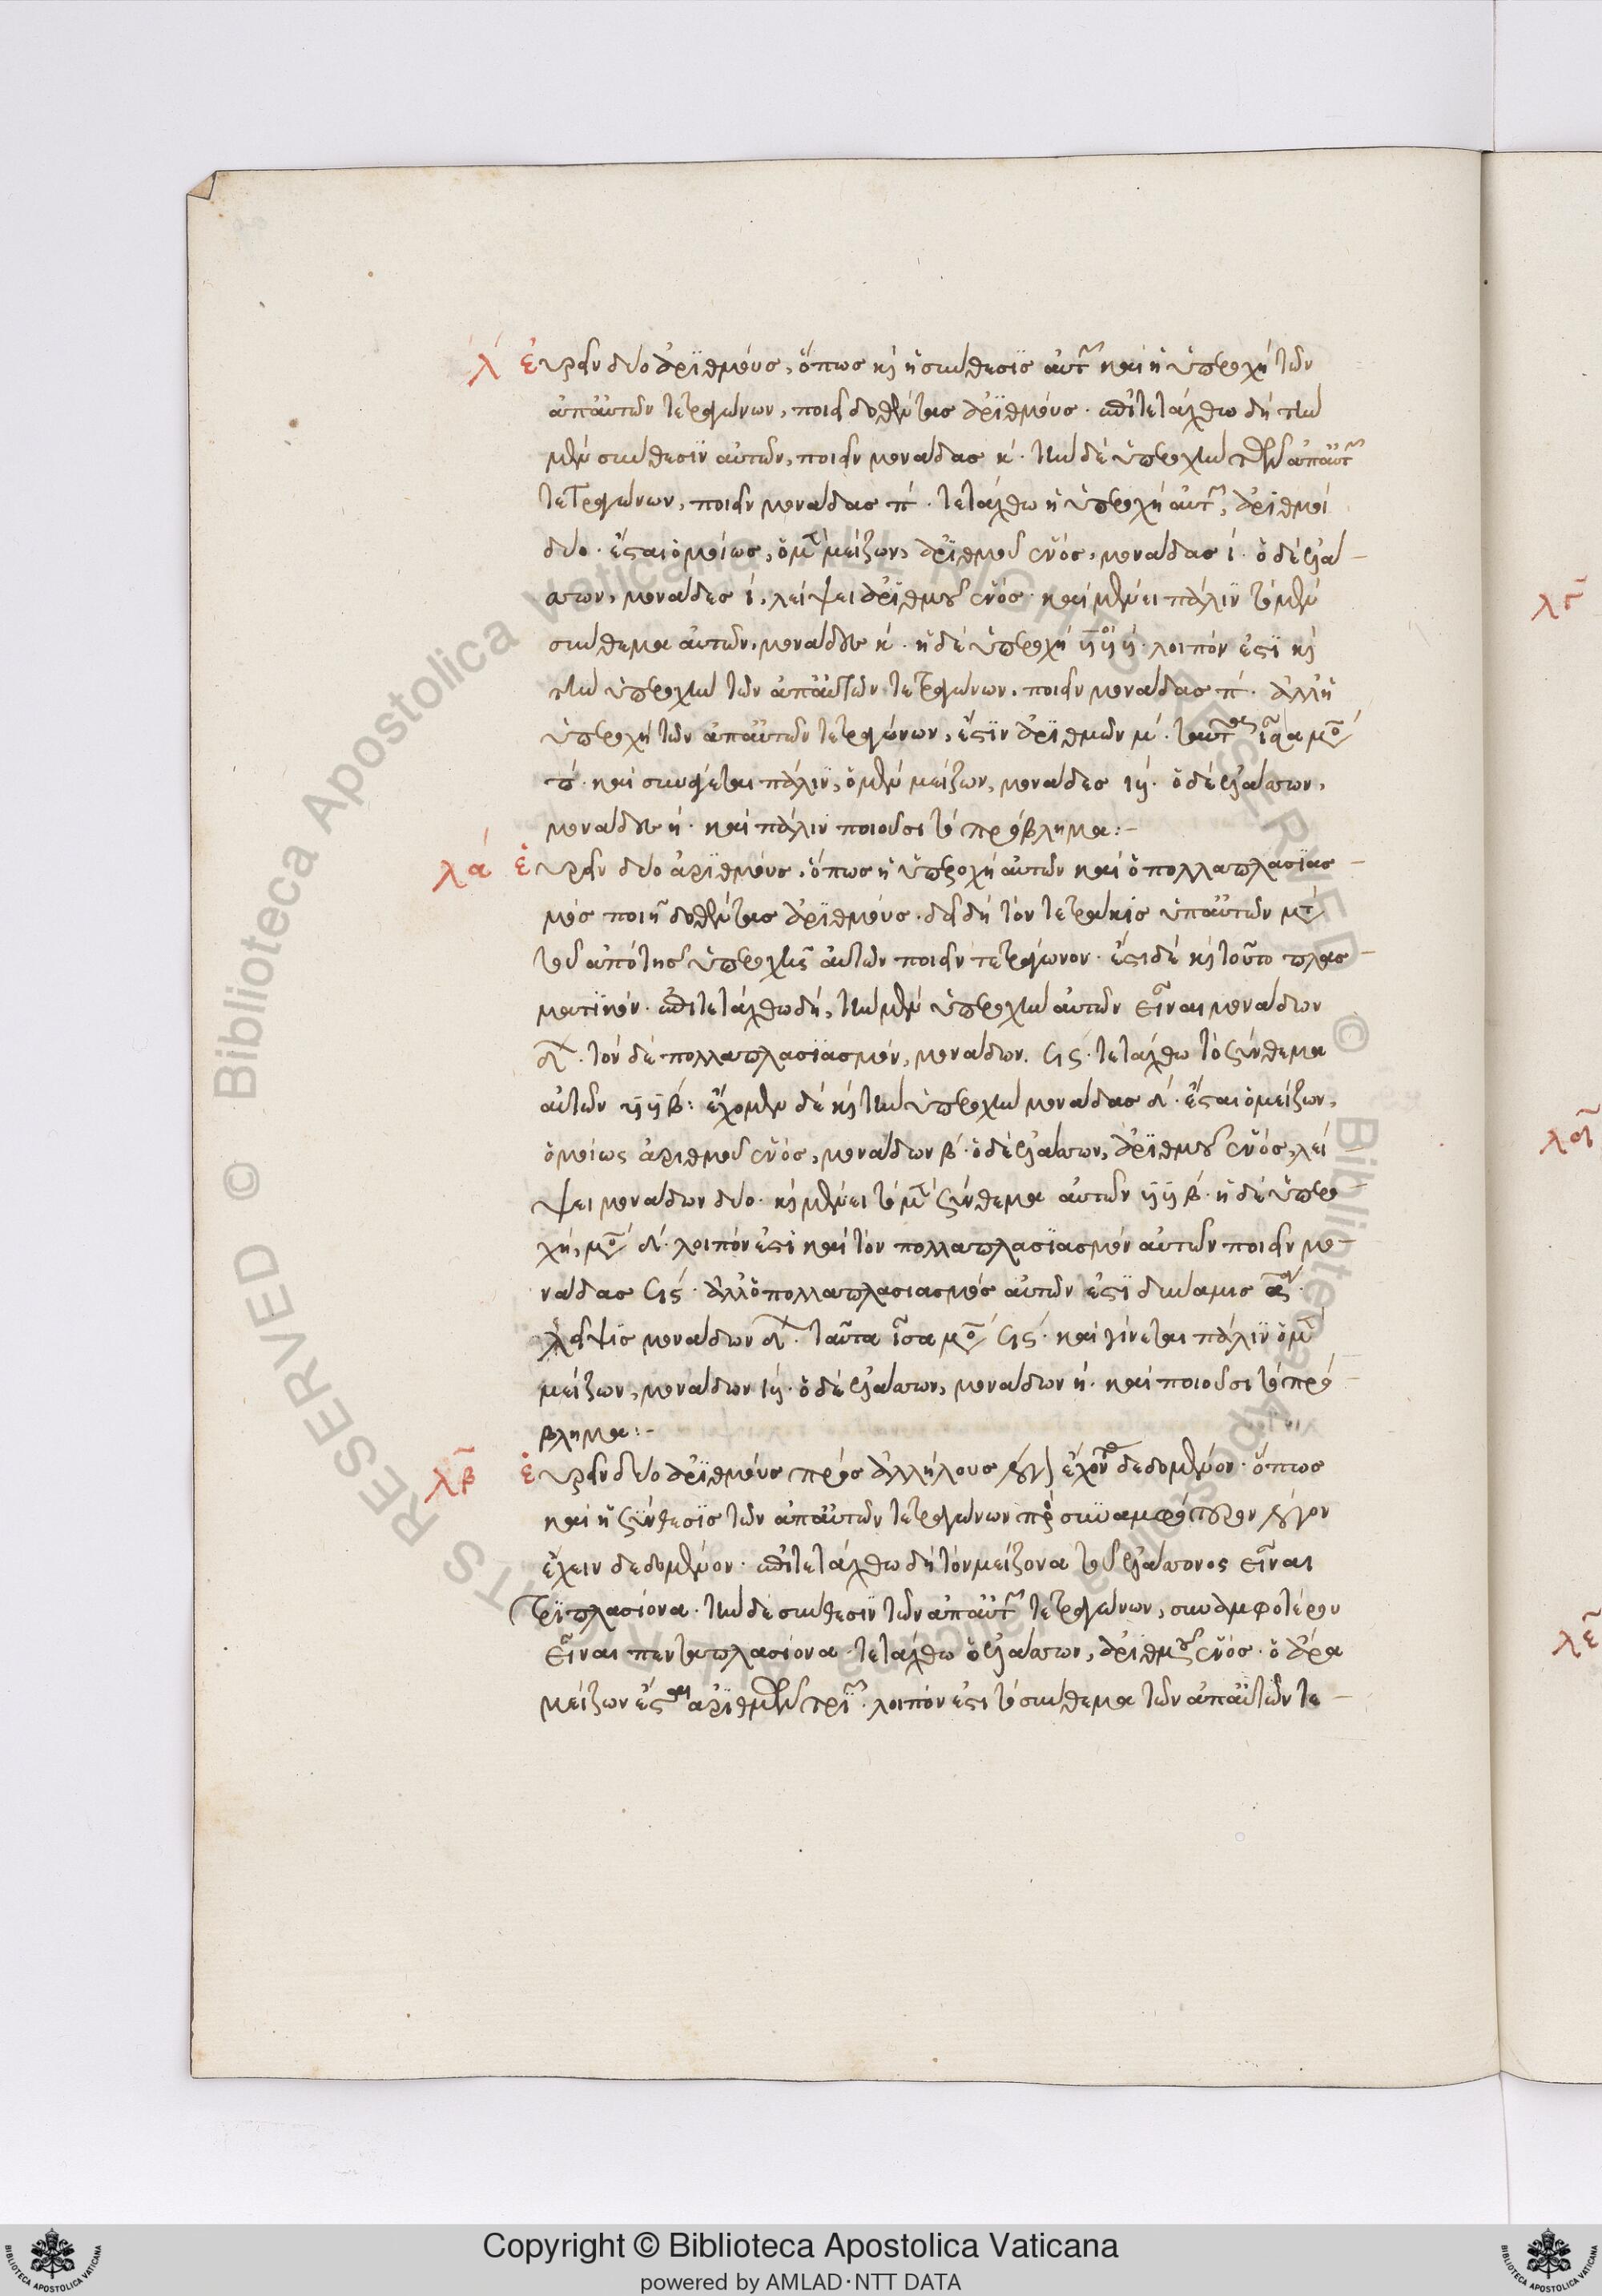 λ εὑρεῖν δύο ἀριθμοὺς, ὅπως καὶ ἡ σύνθεσις αὐτῶν καὶ ἡ ὑπεροχὴ τῶν
ἀπ' αὐτῶν τετραγώνων, ποιεῖ δοθέντας ἀριθμούς. ἐπιτετάχθω δὴ τὴν
μὲν σύνθεσιν αὐτῶν, ποιεῖν μονάδας κ. τὴν δὲ ὑπεροχὴν τῶν ἀπ' αὐτῶν
τετραγώνων, ποιεῖν μονάδας π. τετάχθω ἡ ὑπεροχὴ αὐτῶν, ἀριθμοὶ
δύο. ἔσται ὁμοίως, ὁ μὲν μείζων, ἀριθμοῦ ἑνός, μονάδας ι. ὁ δὲ ἐλά-
ττων, μονάδες ι, λείψει ἀριθμοῦ ἑνός. καὶ μένει πάλιν τὸ μὲν
σύνθεμα αὐτῶν, μονάδων κ. ἡ δὲ ὑπεροχὴ λοιπόν ἐστι καὶ
τὴν ὑπεροχὴν τῶν ἀπ' αὐτῶν τετραγώνων, ποιεῖν μονάδας π. ἀλλ' ἡ
ὑπεροχὴ τῶν ἀπ' αὐτῶν τετραγώνων, ἐστὶν ἀριθμῶν μ. ταῦτα ἴσα μο
π. καὶ συνάγεται πάλιν, ὁ μὲν μείζων, μονάδες ιβ. ὁ δὲ ἐλάττων,
μονάδων η. καὶ πάλιν ποιοῦσι τὸ πρόβλημα:-
λα εὑρεῖν δύο ἀριθμοὺς, ὅπως ἡ ὑπεροχὴ αὐτῶν καὶ ὁ πολλαπλασιασ-
μὸς ποιῇ δοθέντας ἀριθμούς. δεῖ δὴ τὸν τετράκις ὑπ' αὐτῶν μετὰ
τοῦ ἀπὸ τῆς ὑπεροχῆς αὐτῶν ποιεῖν τετράγωνον. ἔστι δὲ καὶ τοῦτο πλασ-
ματικόν. ἐπιτετάχθω δὴ, τὴν μὲν ὑπεροχὴν αὐτῶν εἶναι μονάδων
δ. τὸν δὲ πολλαπλασιασμὸν, μονάδων. ϟϛ. τετάχθω τὸ σύνθεμα
αὐτῶν β: ἔχομεν δὲ καὶ τὴν ὑπεροχὴν μονάδας δ. ἔσται ὁ μείζων,
ὁμοίως ἀριθμοῦ ἑνός, μονάδων β. ὁ δὲ ἐλάττων, ἀριθμοῦ ἑνός, λεί
ψει μονάδων δύο. καὶ μένει τὸ μὲν σύνθεμα αὐτῶν β. ἡ δὲ ὑπερο-
χή, μο δ. λοιπόν ἐστι καὶ τὸν πολλαπλασιασμὸν αὐτῶν ποιεῖν μο-
νάδας ϟϛ. ἀλλ' ὁ πολλαπλασιασμὸς αὐτῶν ἐστὶ δύναμις α
λεῖψις μονάδων δ. ταῦτα ἴσα μο ϟϛ. καὶ γίνεται πάλιν ὁ μὲν
μείζων, μονάδων ιβ. ὁ δὲ ἐλάττων, μονάδων η. καὶ ποιοῦσι τὸ πρό-
βλημα:-
λβ εὑρεῖν δύο ἀριθμοὺς πρὸς ἀλλήλους λόγον ἔχοντας δεδομένον. ὅπως
καὶ ἡ σύνθεσις τῶν ἀπ' αὐτῶν τετραγώνων πρὸς συναμφότερον λόγον
ἔχειν δεδομένον. ἐπιτετάχθω δὴ τὸν μείζονα τοῦ ἐλάττονος εἶναι
τριπλασίονα. τὴν δὲ σύνθεσιν τῶν ἀπ' αὐτῶν τετραγώνων, συναμφοτέρου
εἶναι πενταπλασίονα. τετάχθω ὁ ἐλάττων, ἀριθμοῦ ἑνός. ὁ ἄρα
μείζων ἔσται ἀριθμῶν τριῶν. λοιπόν ἐστι τὸ σύνθεμα τῶν ἀπ' αὐτῶν τε-
λγ
λδ
λε
© Biblioteca Apostolica Vaticana ALL RIGHTS RESERVED
© Biblioteca Apostolica Vaticana ALL RIGHTS RESERVED
Copyright © Biblioteca Apostolica Vaticana
powered by AMLAD·NTT DATA
BIBLIOTECA APOSTOLICA VATICANA
BIBLIOTECA APOSTOLICA VATICANA